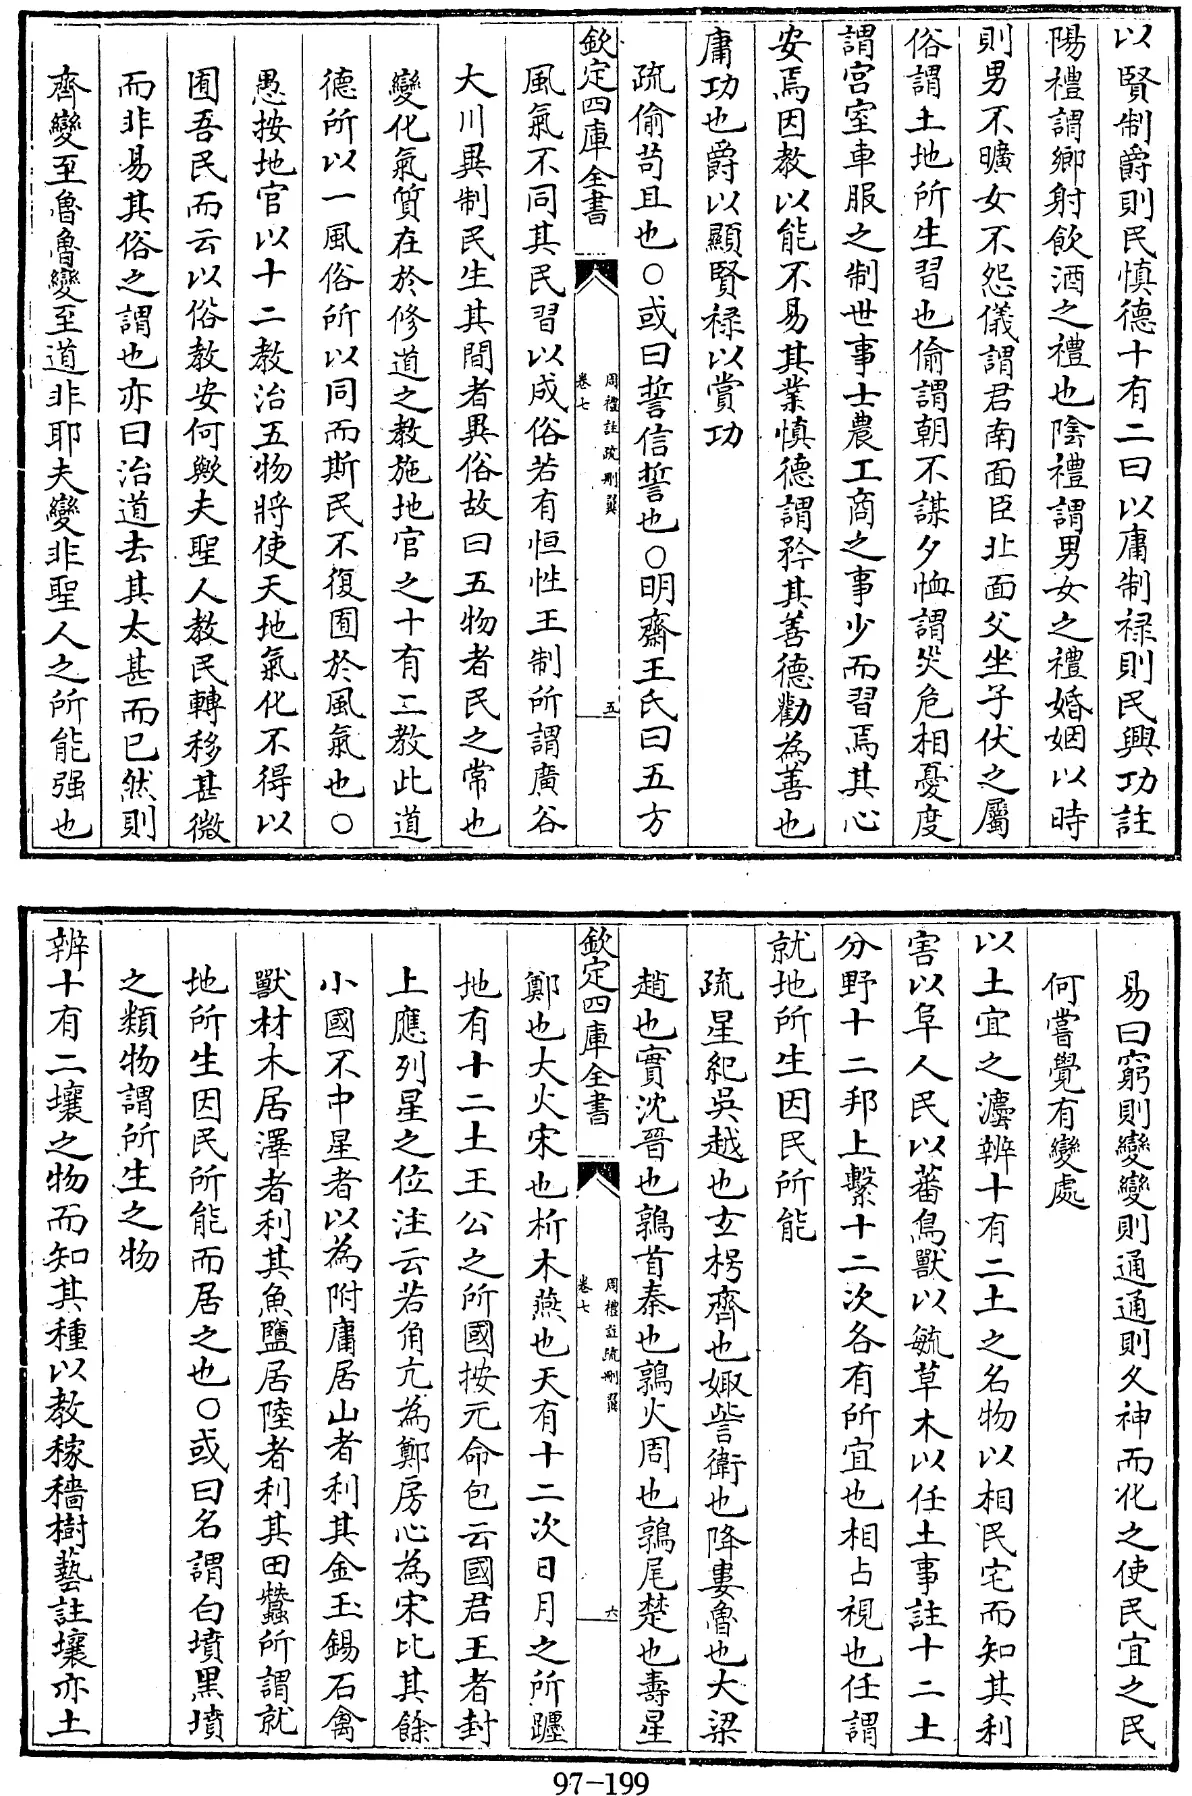 以賢制爵則民慎德十有二曰以庸制祿則民興功註
陽禮謂鄉射飲酒之禮也陰禮謂男女之禮婚姻以時
則男不曠女不怨儀謂君南面臣北面父坐子伏之屬
俗謂土地所生習也偷謂朝不謀夕恤謂災危相憂度
謂宮室車服之制世事士農工商之事少而習焉其心
安焉因教以能不易其業慎德謂矜其善德勸為善也
庸功也爵以顯賢祿以賞功
疏偷苟且也○或曰誓信誓也○明齋王氏曰五方
欽定四庫全書
周禮註疏刪翼
卷七
五
風氣不同其民習以成俗若有恒性王制所謂廣谷
大川異制民生其間者異俗故曰五物者民之常也
變化氣質在於修道之教施地官之十有二教此道
德所以一風俗所以同而斯民不復囿於風氣也○
愚按地官以十二教治五物將使天地氣化不得以
囿吾民而云以俗教安何歟夫聖人教民轉移甚微
而非易其俗之謂也亦曰治道去其太甚而已然則
齊變至魯魯變至道非耶夫變非聖人之所能强也
易曰窮則變變則通通則久神而化之使民宜之民
何嘗覺有變處
以土宜之灋辨十有二土之名物以相民宅而知其利
害以阜人民以蕃鳥獸以毓草木以任土事註十二土
分野十二邦上繫十二次各有所宜也相占視也任謂
就地所生因民所能
疏星紀吳越也玄枵齊也娵訾衛也降婁魯也大梁
趙也實沈晉也鶉首秦也鶉火周也鶉尾楚也壽星
欽定四庫全書
周禮註疏刪翼
卷七
六
鄭也大火宋也析木燕也天有十二次日月之所躔
地有十二土王公之所國按元命包云國君王者封
上應列星之位注云若角亢為鄭房心為宋比其餘
小國不中星者以為附庸居山者利其金玉錫石禽
獸材木居澤者利其魚鹽居陸者利其田蠶所謂就
地所生因民所能而居之也○或曰名謂白墳黑墳
之類物謂所生之物
辨十有二壤之物而知其種以教稼穡樹藝註壤亦土
97-199